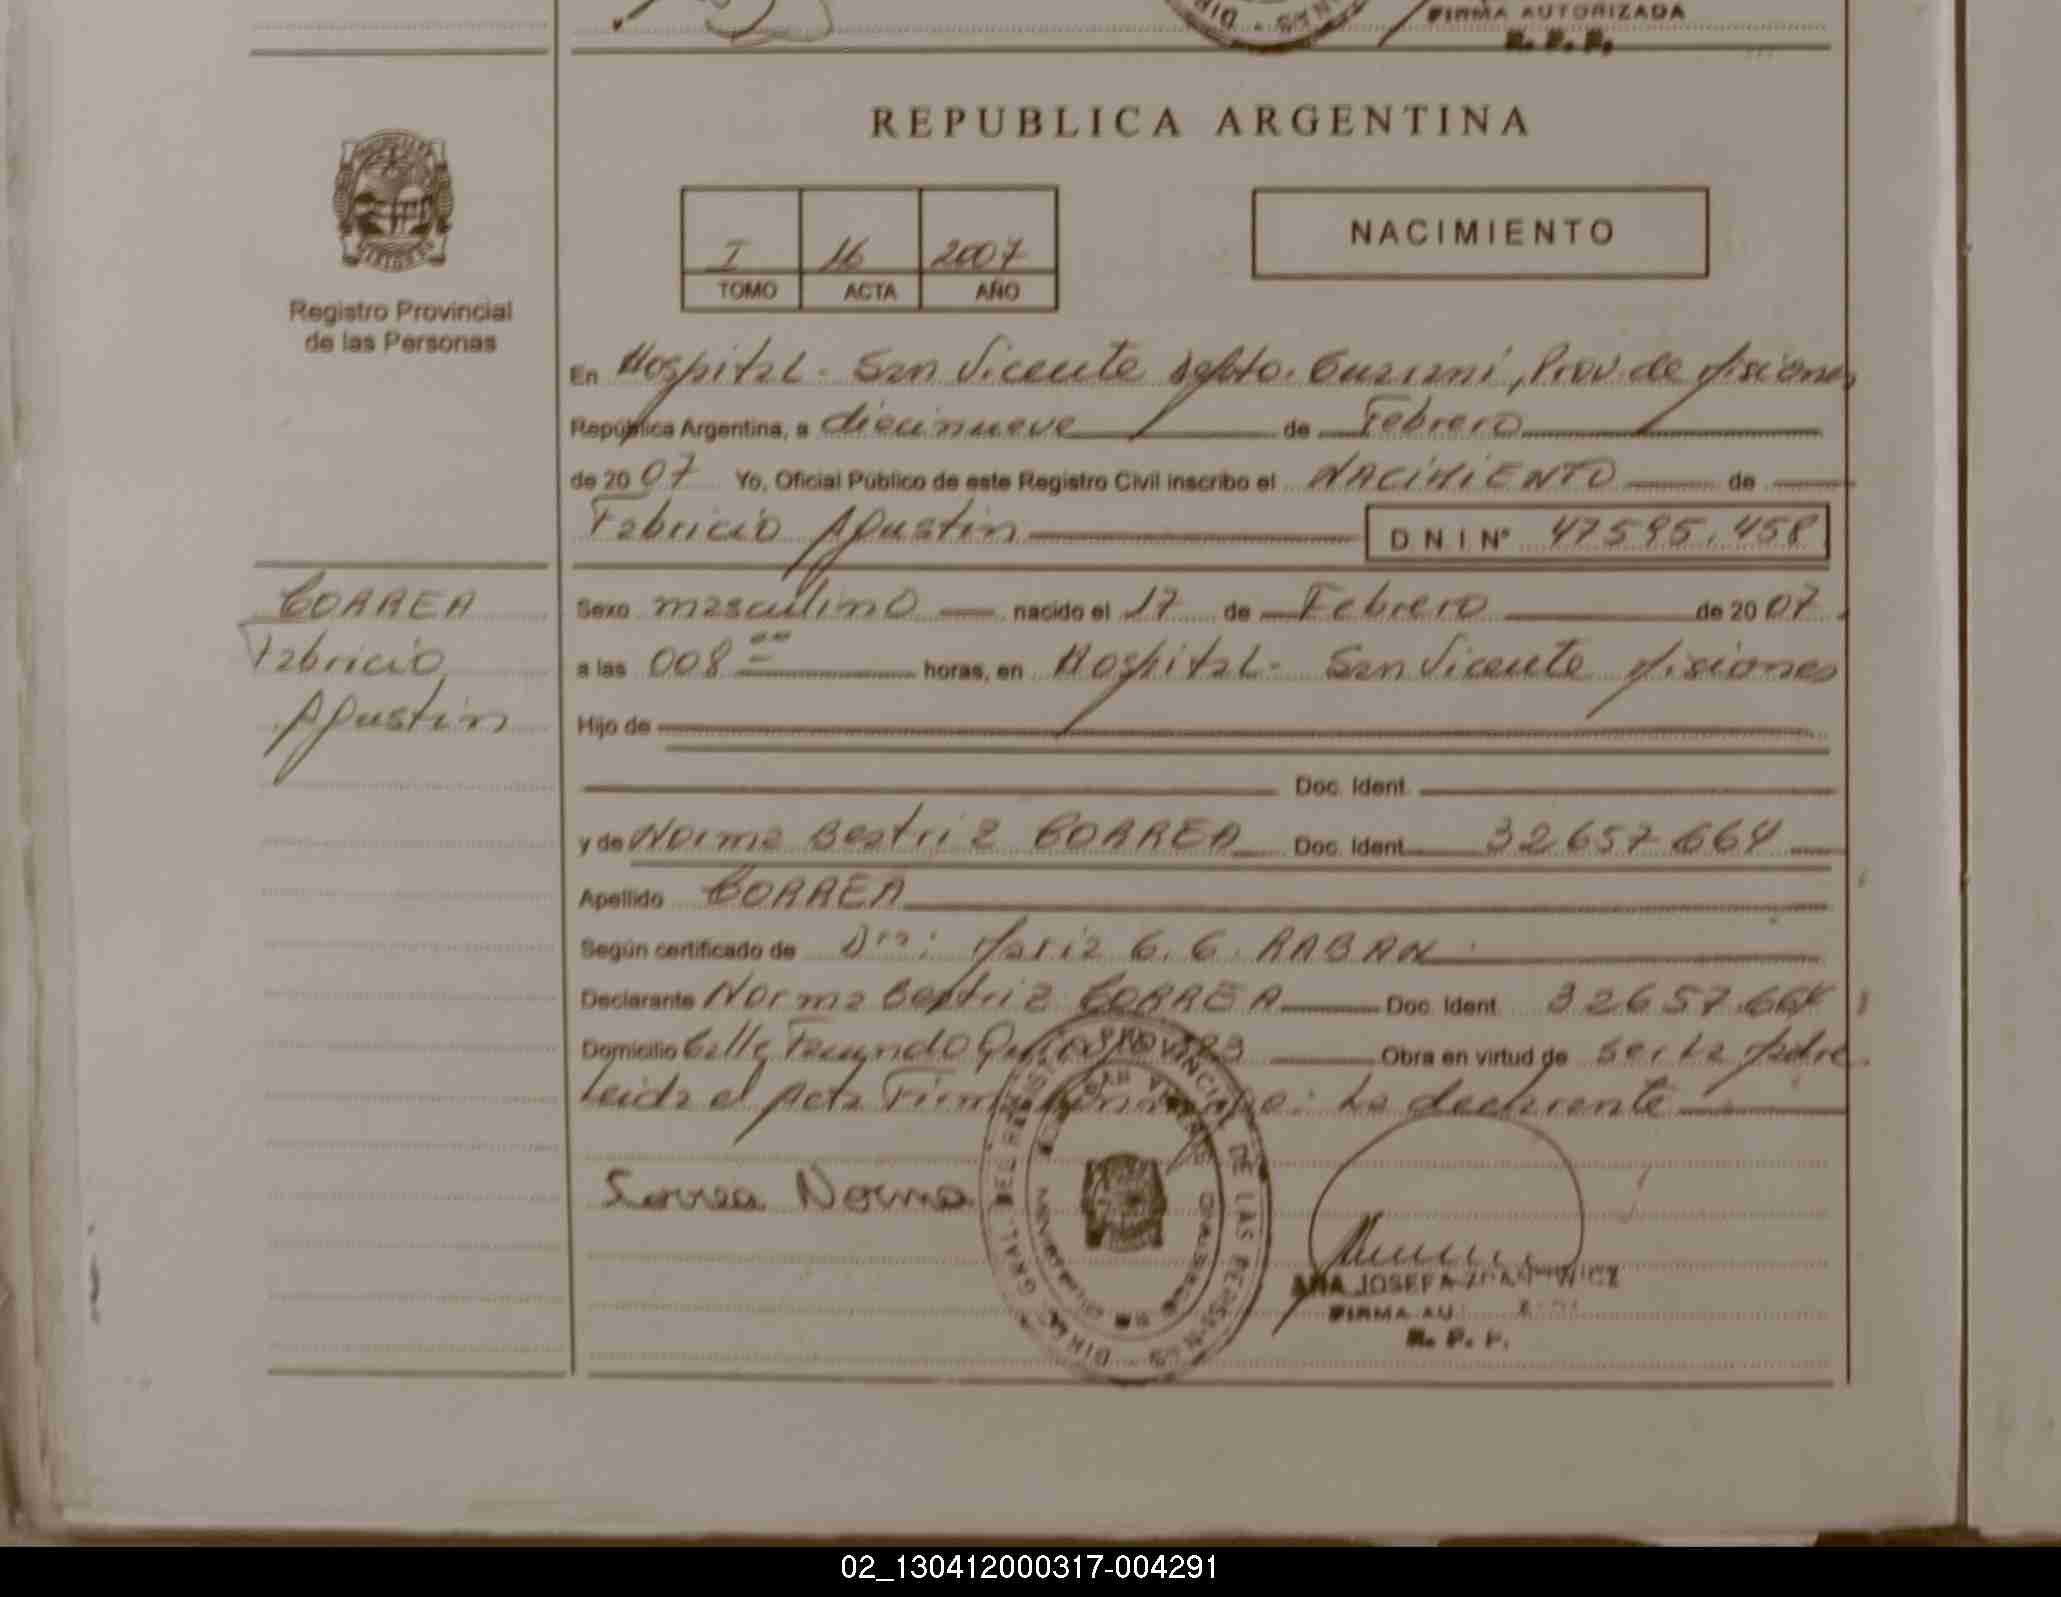 FIRMA AUTORIZADA
R. P. P.
REPUBLICA ARGENTINA
I 16 2007
TOMO ACTA AÑO
NACIMIENTO
Registro Provincial
de las Personas
En Hospital - San Vicente Depto. Guaraní, Prov. de Misiones
República Argentina, a diecinueve de Febrero
de 20 07 Yo, Oficial Público de este Registro Civil inscribo el NACIMIENTO de
Fabricio Agustin DNI Nº 47595.458
CORREA
Fabricio
Agustin
Sexo masculino nacido el 17 de Febrero de 20 07
a las 008 horas, en Hospital - San Vicente Misiones
Hijo de
Doc. Ident.
y de Norma Beatriz CORREA Doc. Ident. 32657664
Apellido CORREA
Según certificado de Dra: Maria G. G. RABAN
Declarante Norma Beatriz CORREA Doc. Ident. 32657.664
Domicilio Calle Facundo Obra en virtud de ser La Madre
Leida el Acta La declarente
Correa Norma
DIR. GRAL. DEL REGISTRO PROVINCIAL DE LAS PERSONAS
ANA JOSEFA
FIRMA AU
R. P. P.
02_130412000317-004291